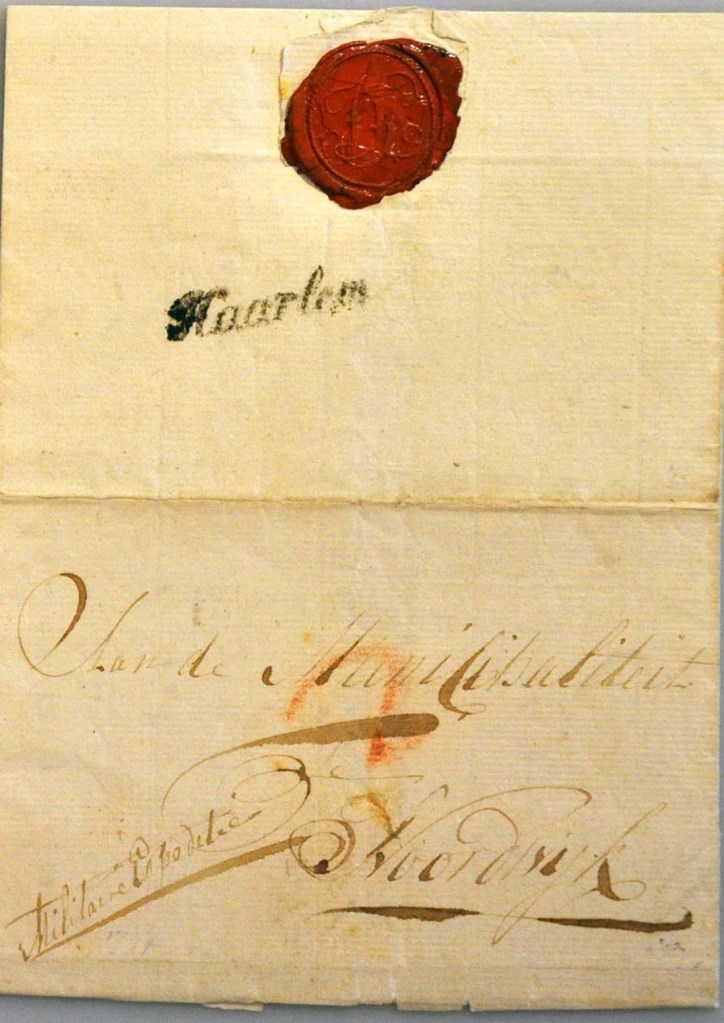 Haarlem
Aan de Municipaliteit
te
Noordwijk
Militaire Expeditie